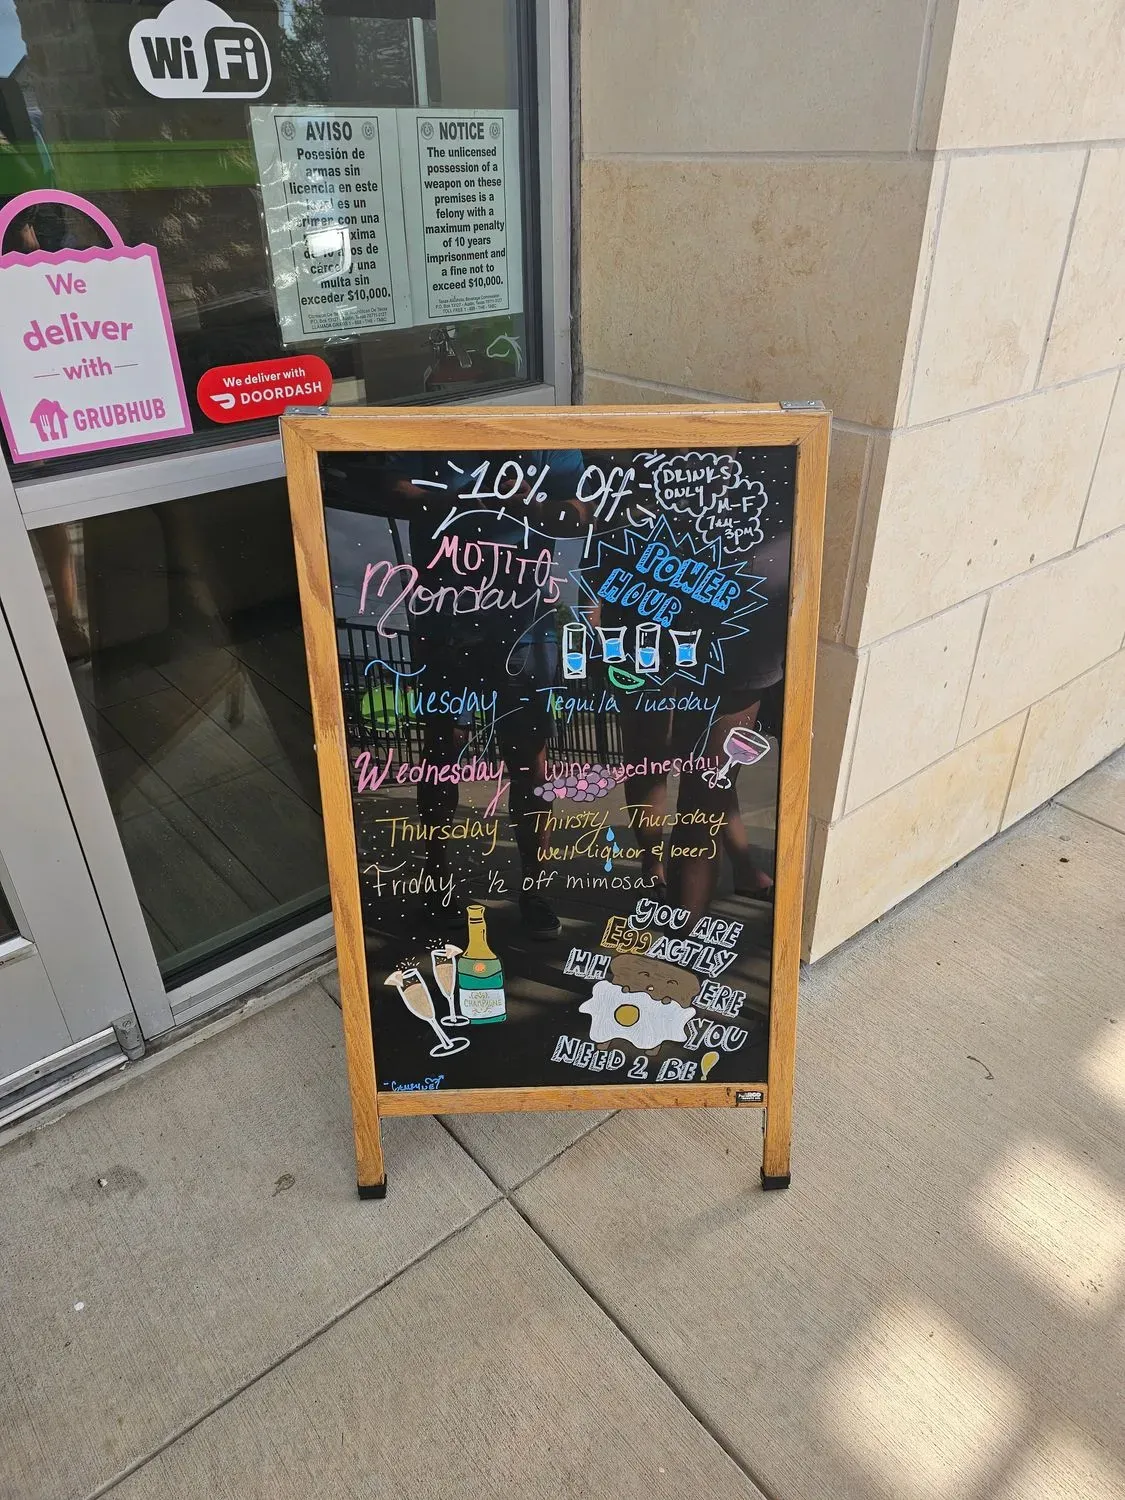 Wi Fi
AVISO
Posesión de
armas sin
licencia en este
es un
con una
de
cárcel y una
multa sin
exceder $10,000.
NOTICE
The unlicensed
possession of a
weapon on these
premises is a
felony with a
maximum penalty
of 10 years
imprisonment and
a fine not to
exceed $10,000.
We
deliver
with
GRUBHUB
We deliver with
DOORDASH
10% Off
DRINKS
ONLY
M-F
7am-
3pm
MOJITO
Mondays
POWER
HOUR
Tuesday - Tequila Tuesday
Wednesday - Wine wednesday
Thursday - Thirsty Thursday
well liquor & beer)
Friday: 1/2 off mimosas
CHAMPAGNE
YOU ARE
EGGACTLY
WHERE
YOU
NEED 2 BE!